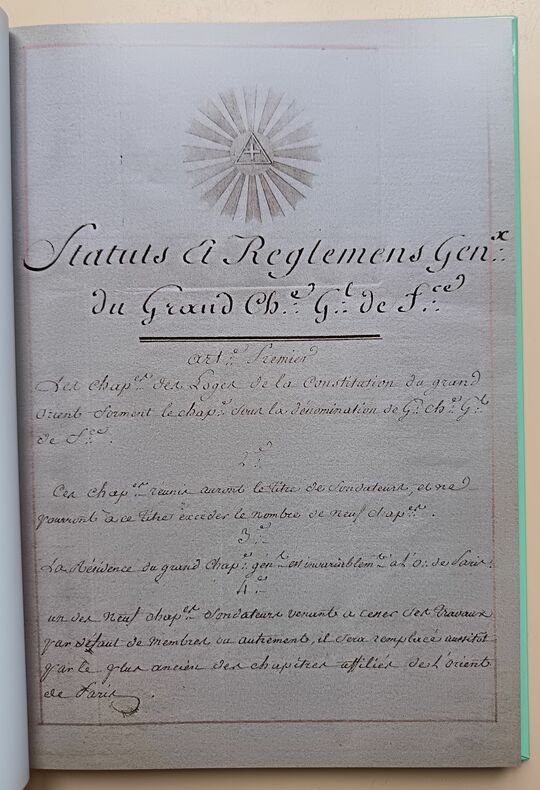 Statuts Et Reglemens Gen.x
du Grand Ch.e G.l de F.ce
art.e Premier
Les chap.es des Loges de la Constitution du grand
orient forment le chap.e sous la dénomination de G. Ch.e G.l
de F.ce.
2.e
Ces chap.es réunis auront le titre de fondateurs, et ne
pourront a ce titre excéder le nombre de neuf chap.es.
3.e
La Résidence du grand Chap.e gén.l est invariablem.t a L'O. de Paris.
4.e
un des neuf chap.es fondateurs venant a cesser ses travaux
par defaut de membres ou autrement, il sera remplacé aussitot
par le plus ancien des chapitres affiliés de L'orient
de Paris.